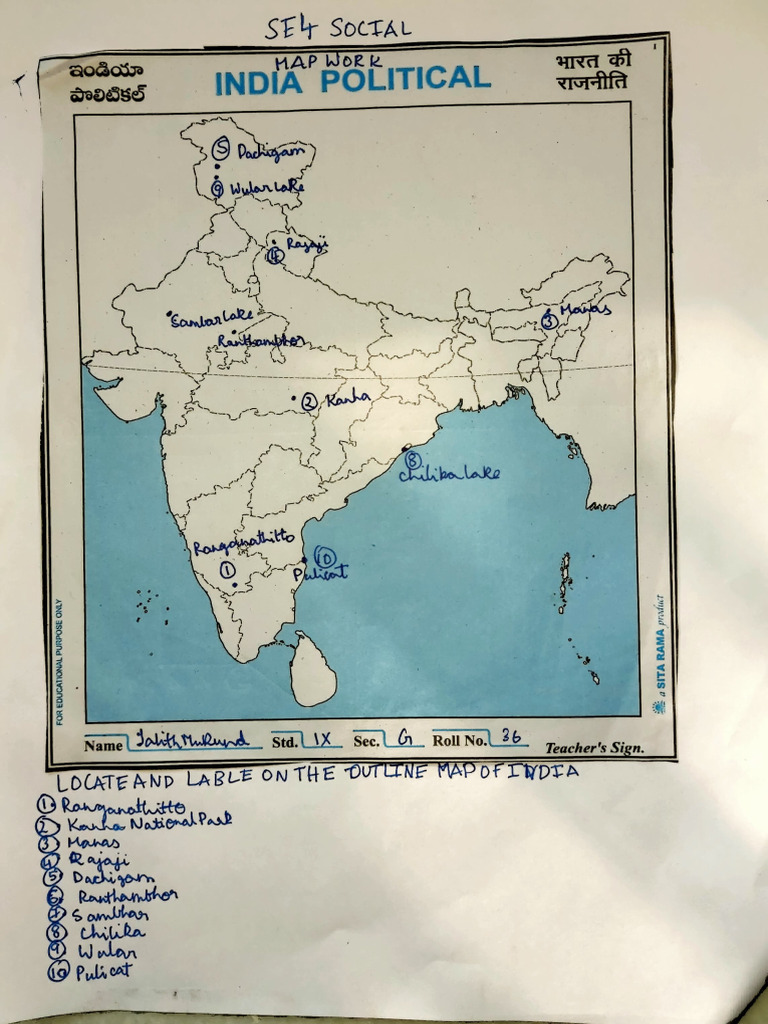 SE4 SOCIAL
MAP WORK
ఇండియా
పొలిటికల్
INDIA POLITICAL
भारत की
राजनीति
1
5 Dachigam
9 Wular Lake
Rajaji
4
Sambar Lake
Ranthambhor
Manas
3
2 Kanha
8
Chilika Lake
Ranganathitto
1
10
Pulicat
FOR EDUCATIONAL PURPOSE ONLY
a SITA RAMA product
Name Lalith Mukund Std. IX Sec. G Roll No. 36 Teacher's Sign.
LOCATE AND LABLE ON THE OUTLINE MAP OF INDIA
1 Ranganathitto
2 Kanha National Park
3 Manas
4 Rajaji
5 Dachigam
6 Ranthambhor
7 Sambhar
8 Chilika
9 Wular
10 Pulicat